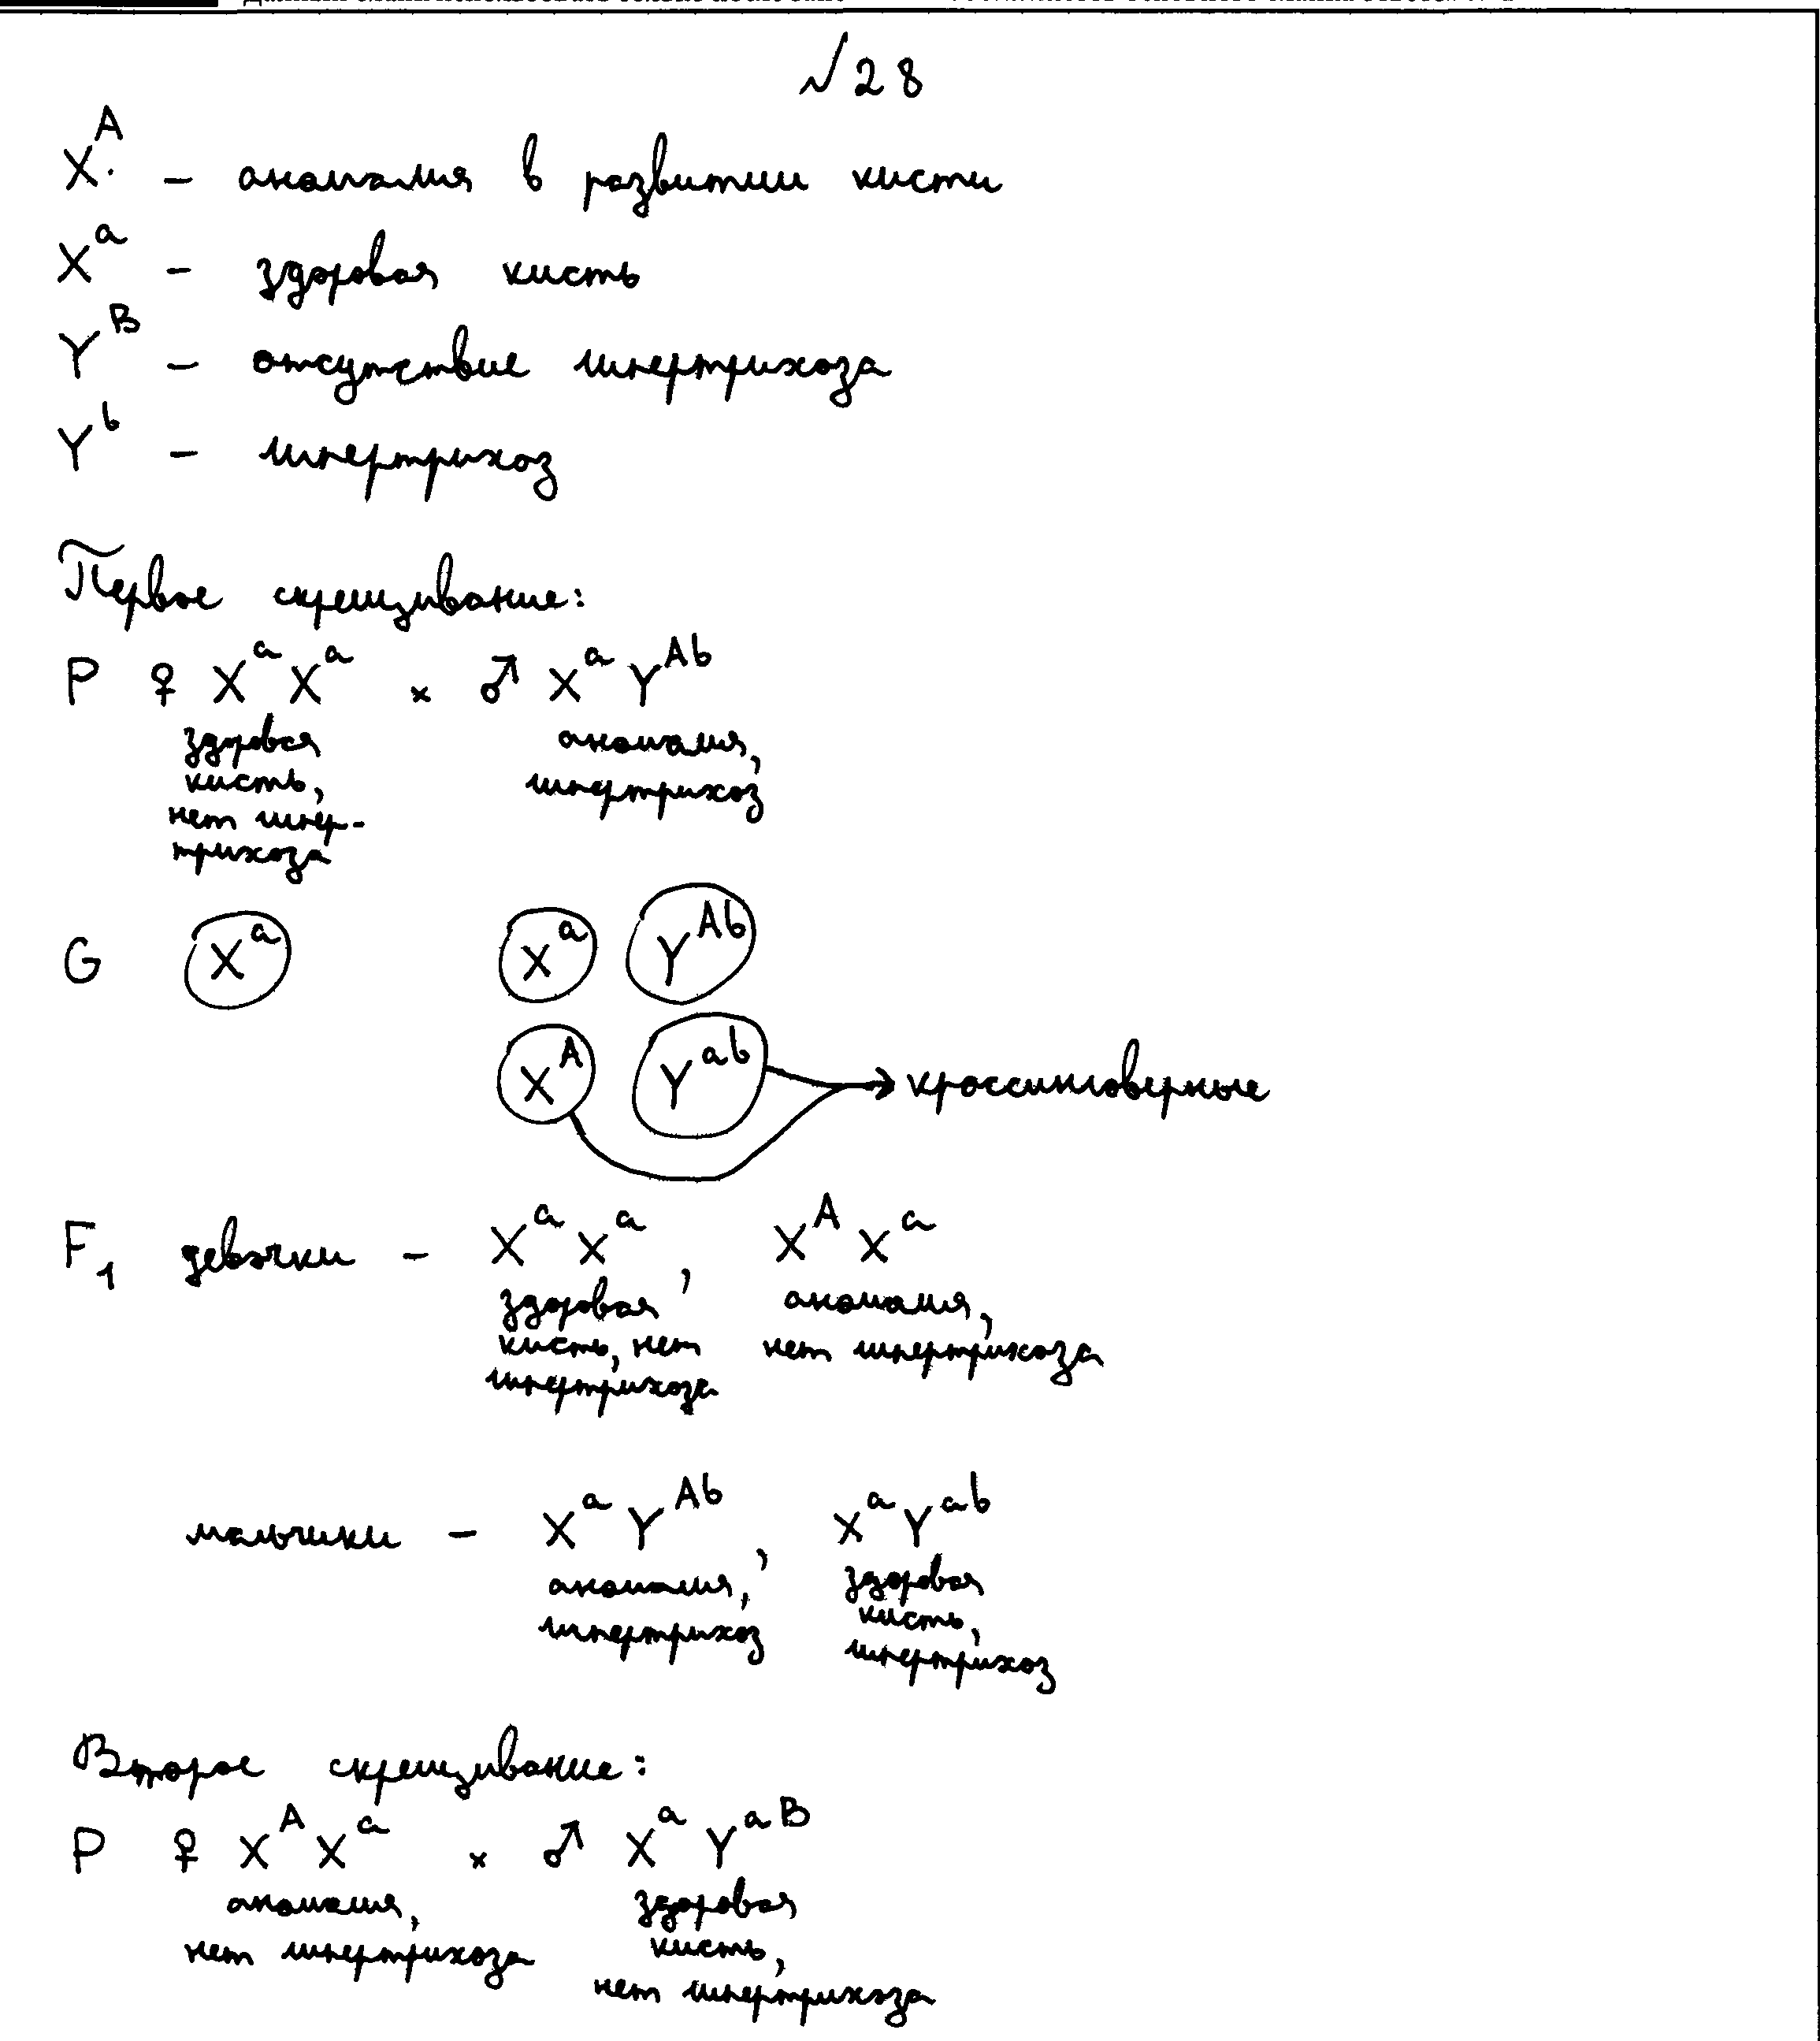 № 28
X^A – аномалия в развитии кисти
X^a – здоровая кисть
Y^B – отсутствие гипертрихоза
Y^b – гипертрихоз
Первое скрещивание:
P ♀ X^a X^a × ♂ X^a Y^Ab
здоровая кисть, нет гипер-трихоза аномалия, гипертрихоз
G X^a X^a Y^Ab
X^A Y^ab → кроссинговерные
F1 девочки – X^a X^a, X^A X^a
здоровая аномалия,
кисть, нет нет гипертрихоза
гипертрихоза
мальчики – X^a Y^Ab, X^a Y^ab
аномалия, здоровая
гипертрихоз кисть,
гипертрихоз
Второе скрещивание:
P ♀ X^A X^a × ♂ X^a Y^aB
аномалия, здоровая
нет гипертрихоза кисть,
нет гипертрихоза